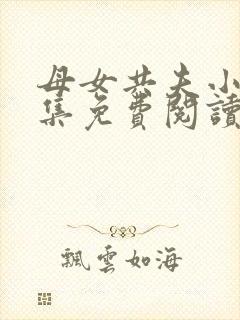 母女共夫小
集免費閱讀
飄雲如海